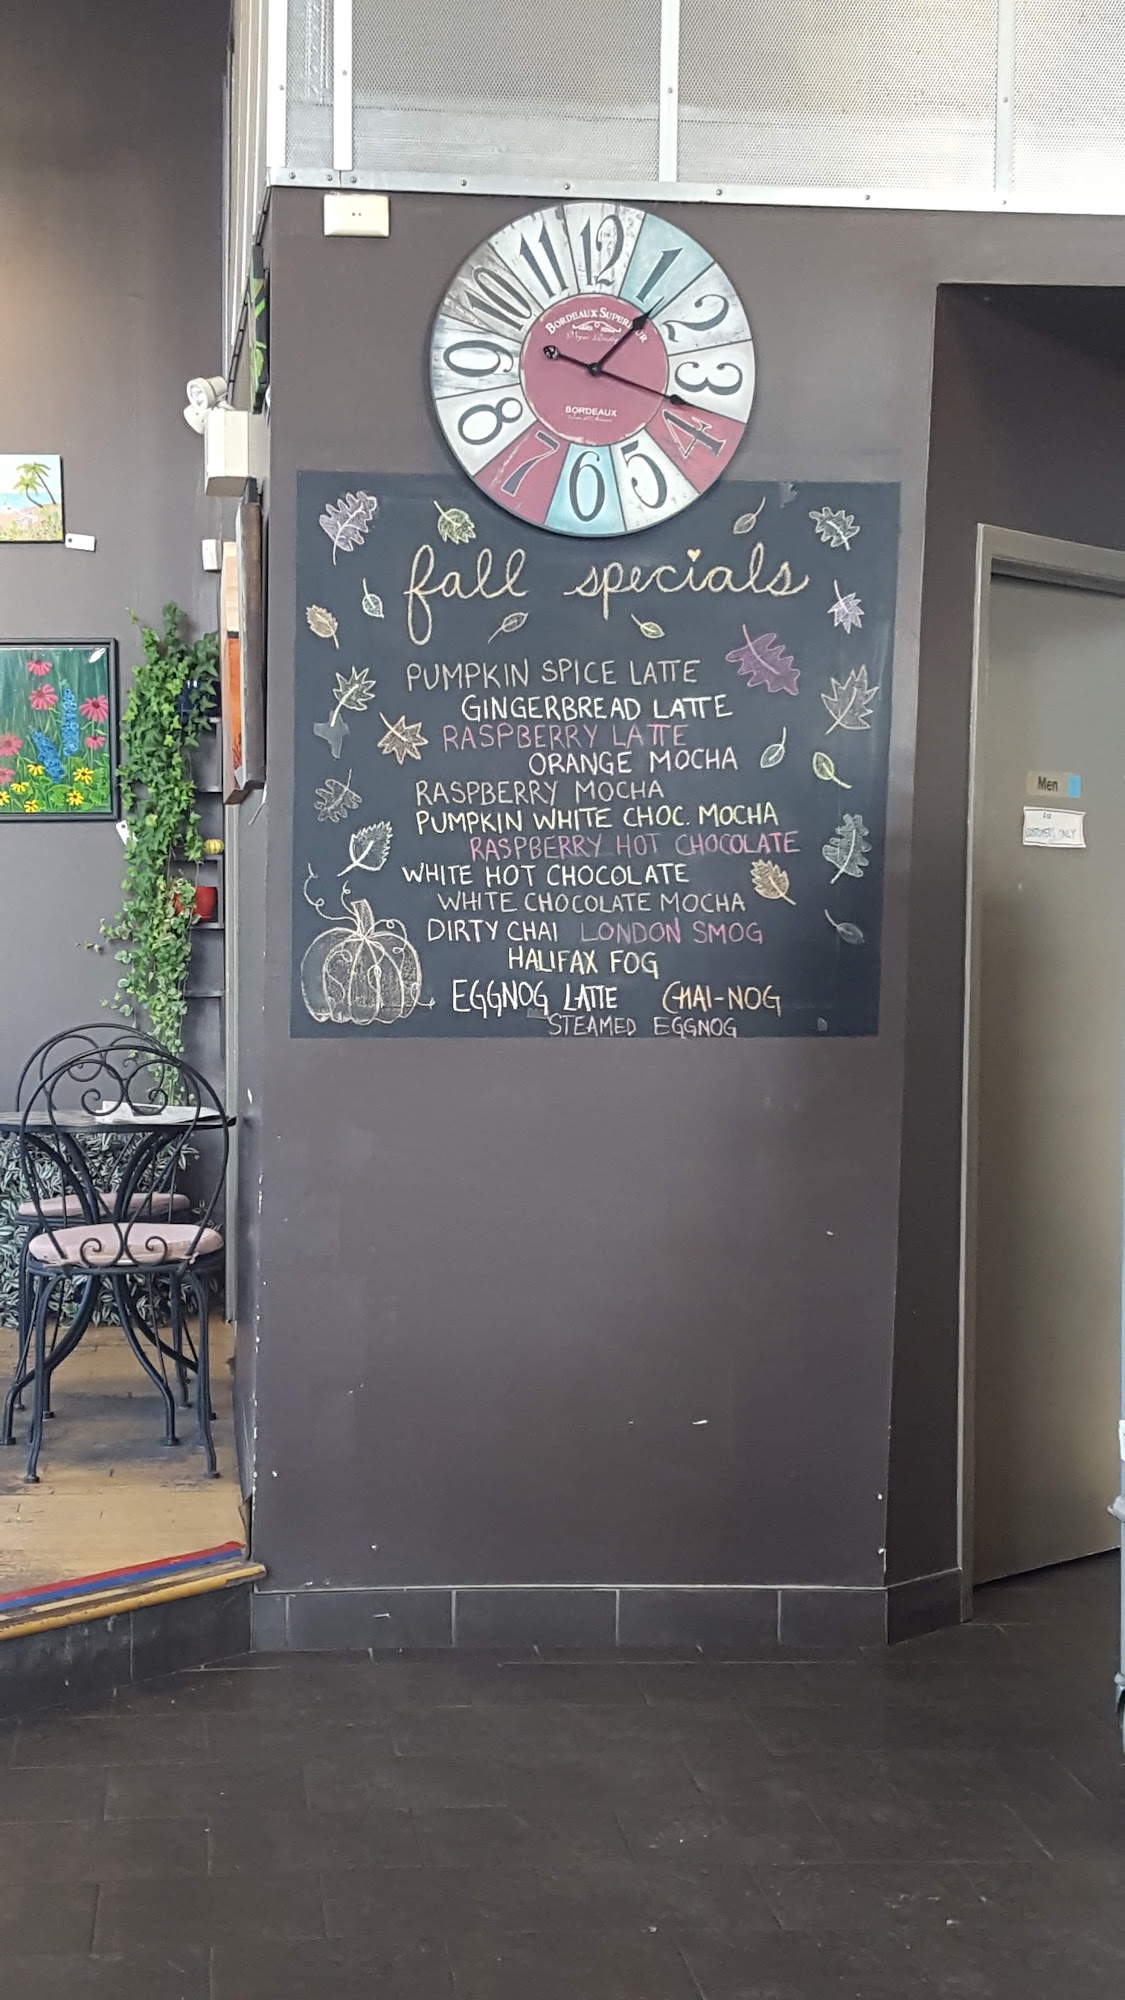 12
1
2
3
4
5
6
7
8
9
10
11
BORDEAUX SUPERIEUR
BORDEAUX
fall specials
PUMPKIN SPICE LATTE
GINGERBREAD LATTE
RASPBERRY LATTE
ORANGE MOCHA
RASPBERRY MOCHA
PUMPKIN WHITE CHOC. MOCHA
RASPBERRY HOT CHOCOLATE
WHITE HOT CHOCOLATE
WHITE CHOCOLATE MOCHA
DIRTY CHAI LONDON SMOG
HALIFAX FOG
EGGNOG LATTE CHAI-NOG
STEAMED EGGNOG
Men
FOR
CUSTOMERS ONLY